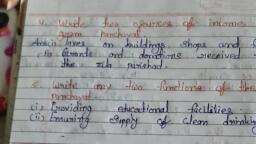 4. Write two sources of incomes
gram panchayat
taxes on buildings shops and
Grants and donations received
the zila parishad.
5. Write any two functions of the
Panchayat.
(i) Providing educational facilities.
(ii) Ensuring supply of clean drinking